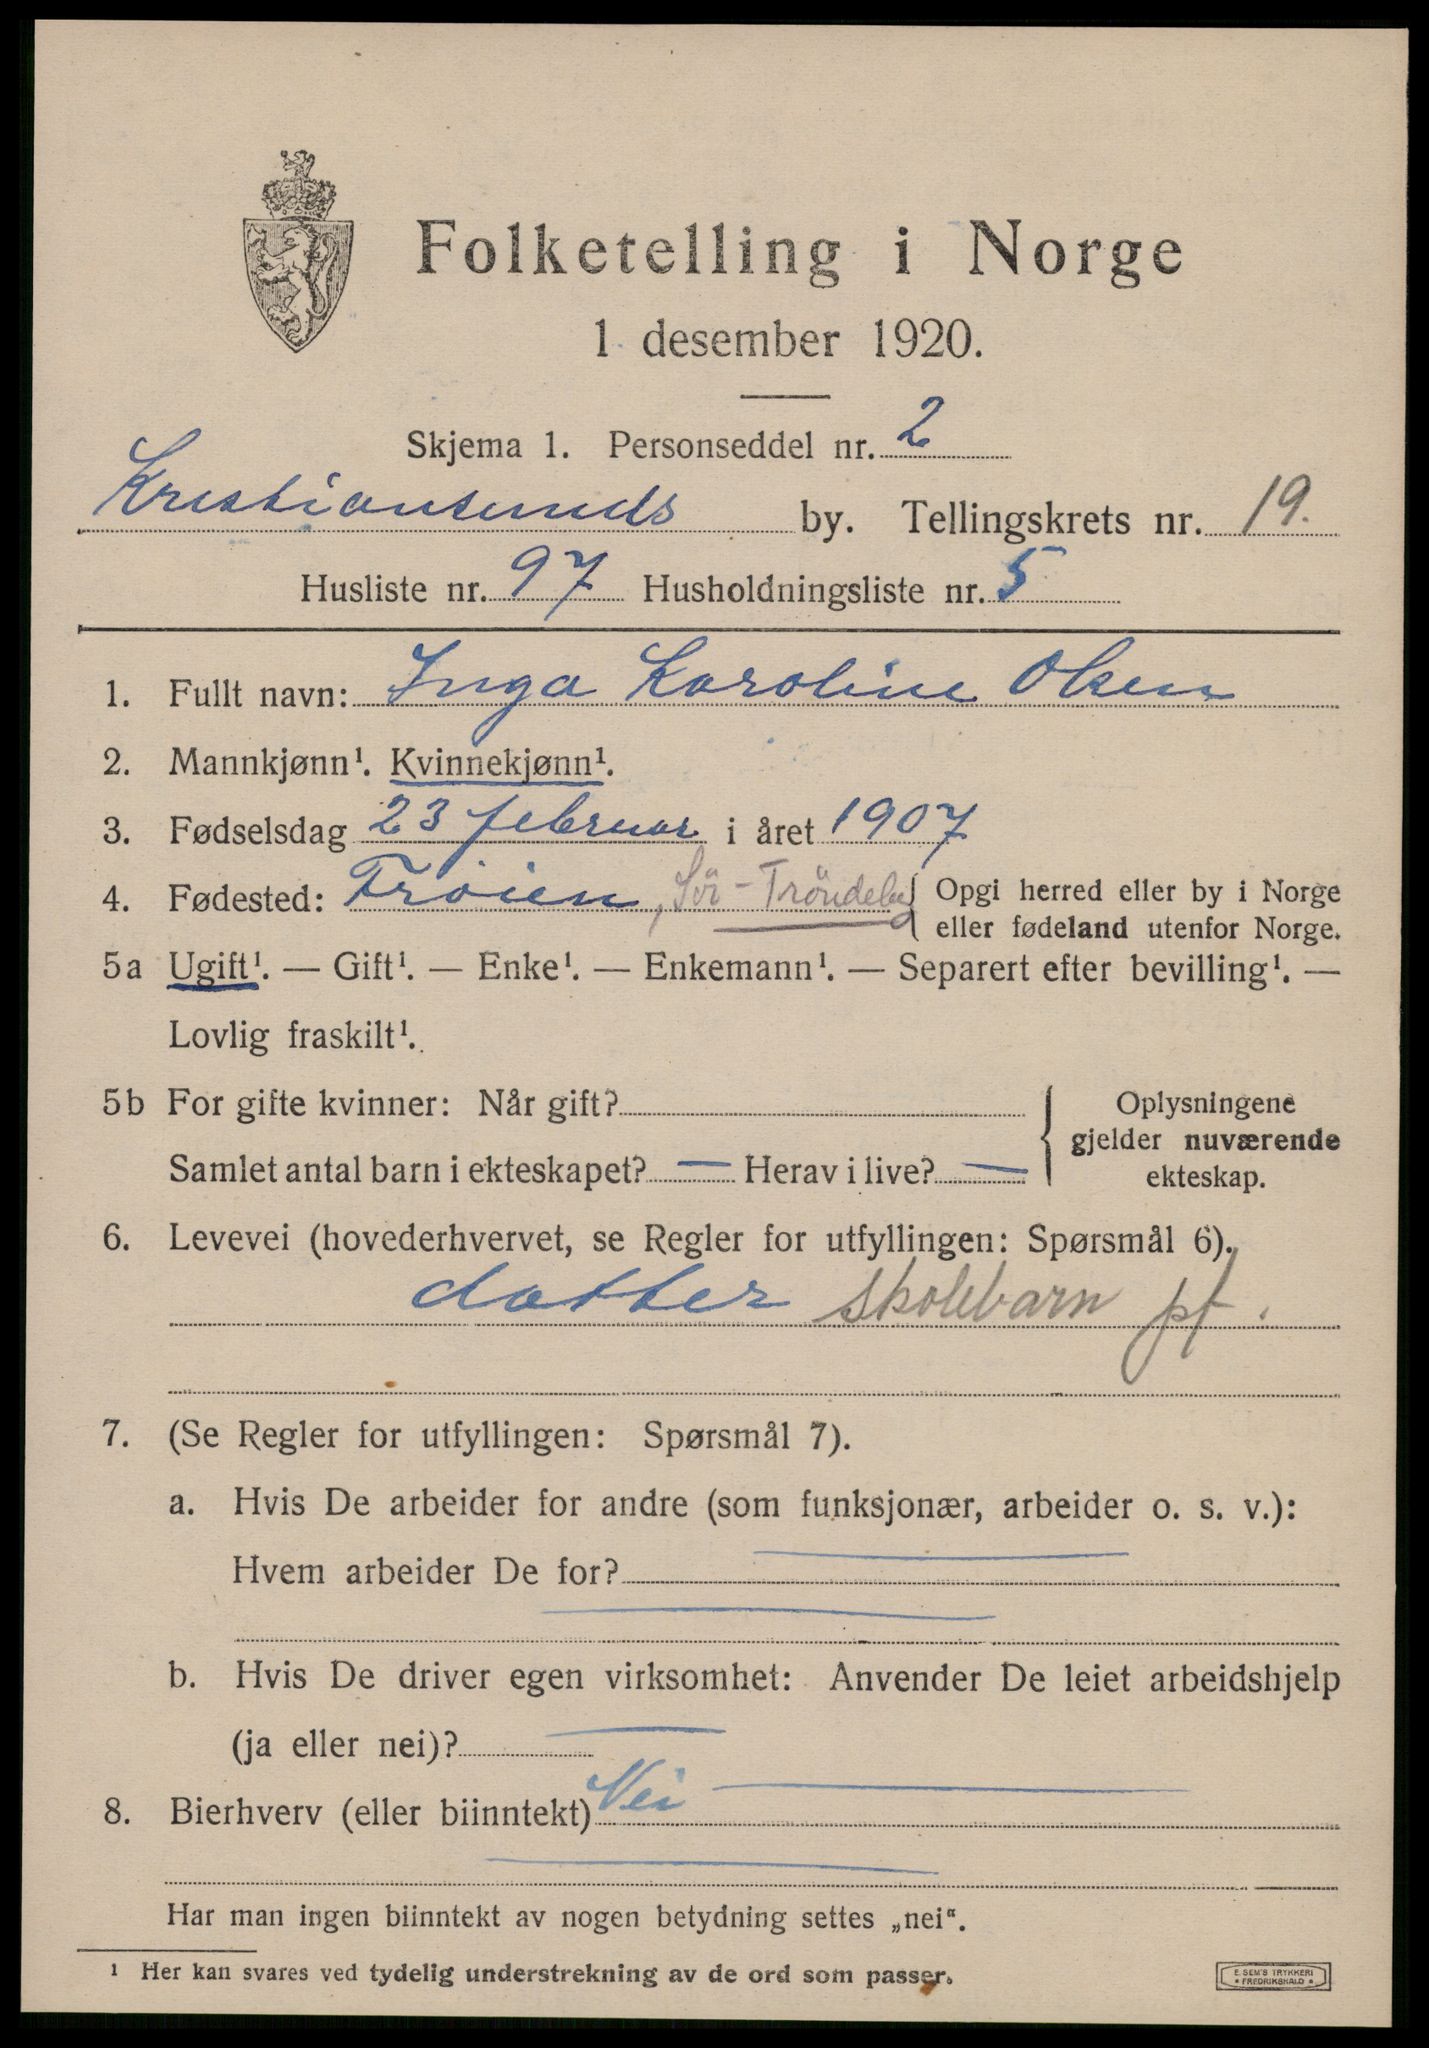 Folketelling i Norge
1 desember 1920.
Skjema 1. Personseddel nr. 2
Kristiansunds by. Tellingskrets nr. 19.
Husliste nr. 97 Husholdningsliste nr. 5
1. Fullt navn: Inga Karoline Olsen
2. Mannkjønn¹. Kvinnekjønn¹.
3. Fødselsdag 23 februar i året 1907
4. Fødested: Fröien, Sör-Tröndelag Opgi herred eller by i Norge
eller fødeland utenfor Norge.
5a Ugift¹. — Gift¹. — Enke¹. — Enkemann¹. — Separert efter bevilling¹. —
Lovlig fraskilt¹.
5b For gifte kvinner: Når gift? Oplysningene
gjelder nuværende
Samlet antal barn i ekteskapet? — Herav i live? — ekteskap.
6. Levevei (hovederhvervet, se Regler for utfyllingen: Spørsmål 6).
datter skolebarn pf.
7. (Se Regler for utfyllingen: Spørsmål 7).
a. Hvis De arbeider for andre (som funksjonær, arbeider o. s. v.):
Hvem arbeider De for?
b. Hvis De driver egen virksomhet: Anvender De leiet arbeidshjelp
(ja eller nei)?
8. Bierhverv (eller biinntekt) Nei
Har man ingen biinntekt av nogen betydning settes „nei“.
¹ Her kan svares ved tydelig understrekning av de ord som passer.
E. SEM'S TRYKKERI
* FREDRIKSHALD *